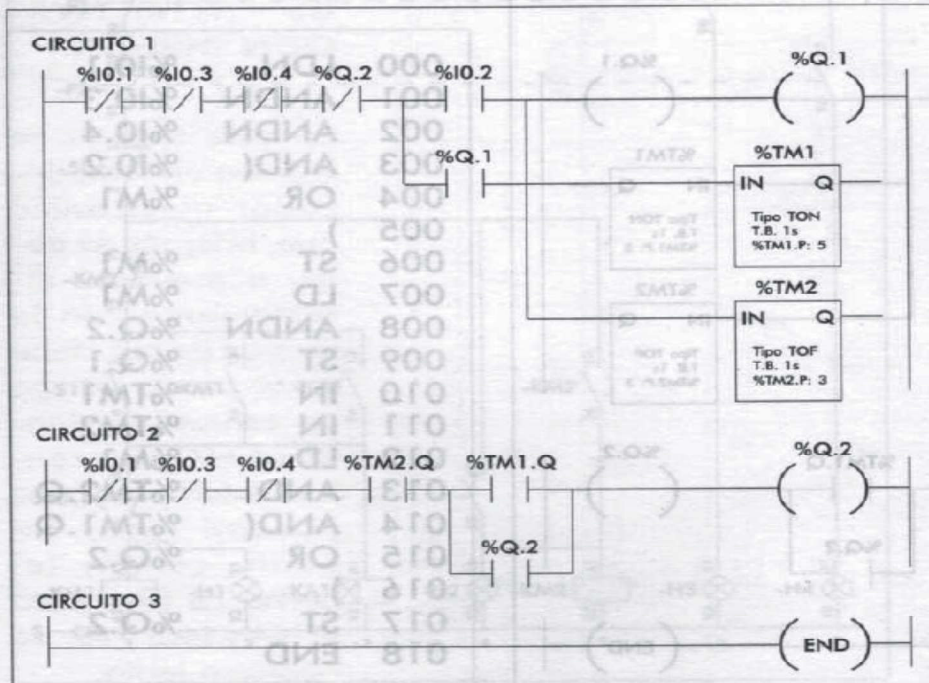 CIRCUITO 1
%I0.1 %I0.3 %I0.4 %Q.2 %I0.2 %Q.1
%Q.1 %TM1
IN Q
Tipo TON
T.B. 1s
%TM1.P: 5
%TM2
IN Q
Tipo TOF
T.B. 1s
%TM2.P: 3
CIRCUITO 2
%I0.1 %I0.3 %I0.4 %TM2.Q %TM1.Q %Q.2
%Q.2
CIRCUITO 3
END